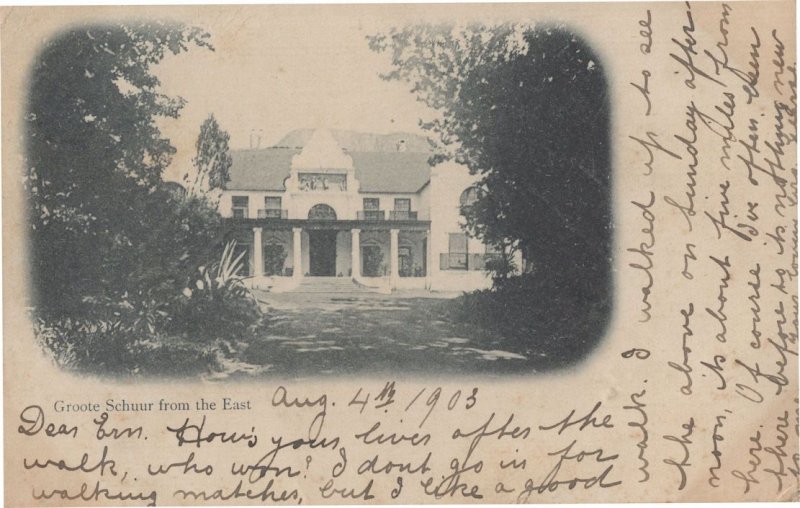 Groote Schuur from the East
Aug. 4th 1903
Dear Ern. How's your livers after the
walk, who won? I dont go in for
walking matches, but I like a good
walk. I walked up to see
the above on Sunday after-
noon, its about five miles from
here. Of course I've often been
there before so its nothing new
to me